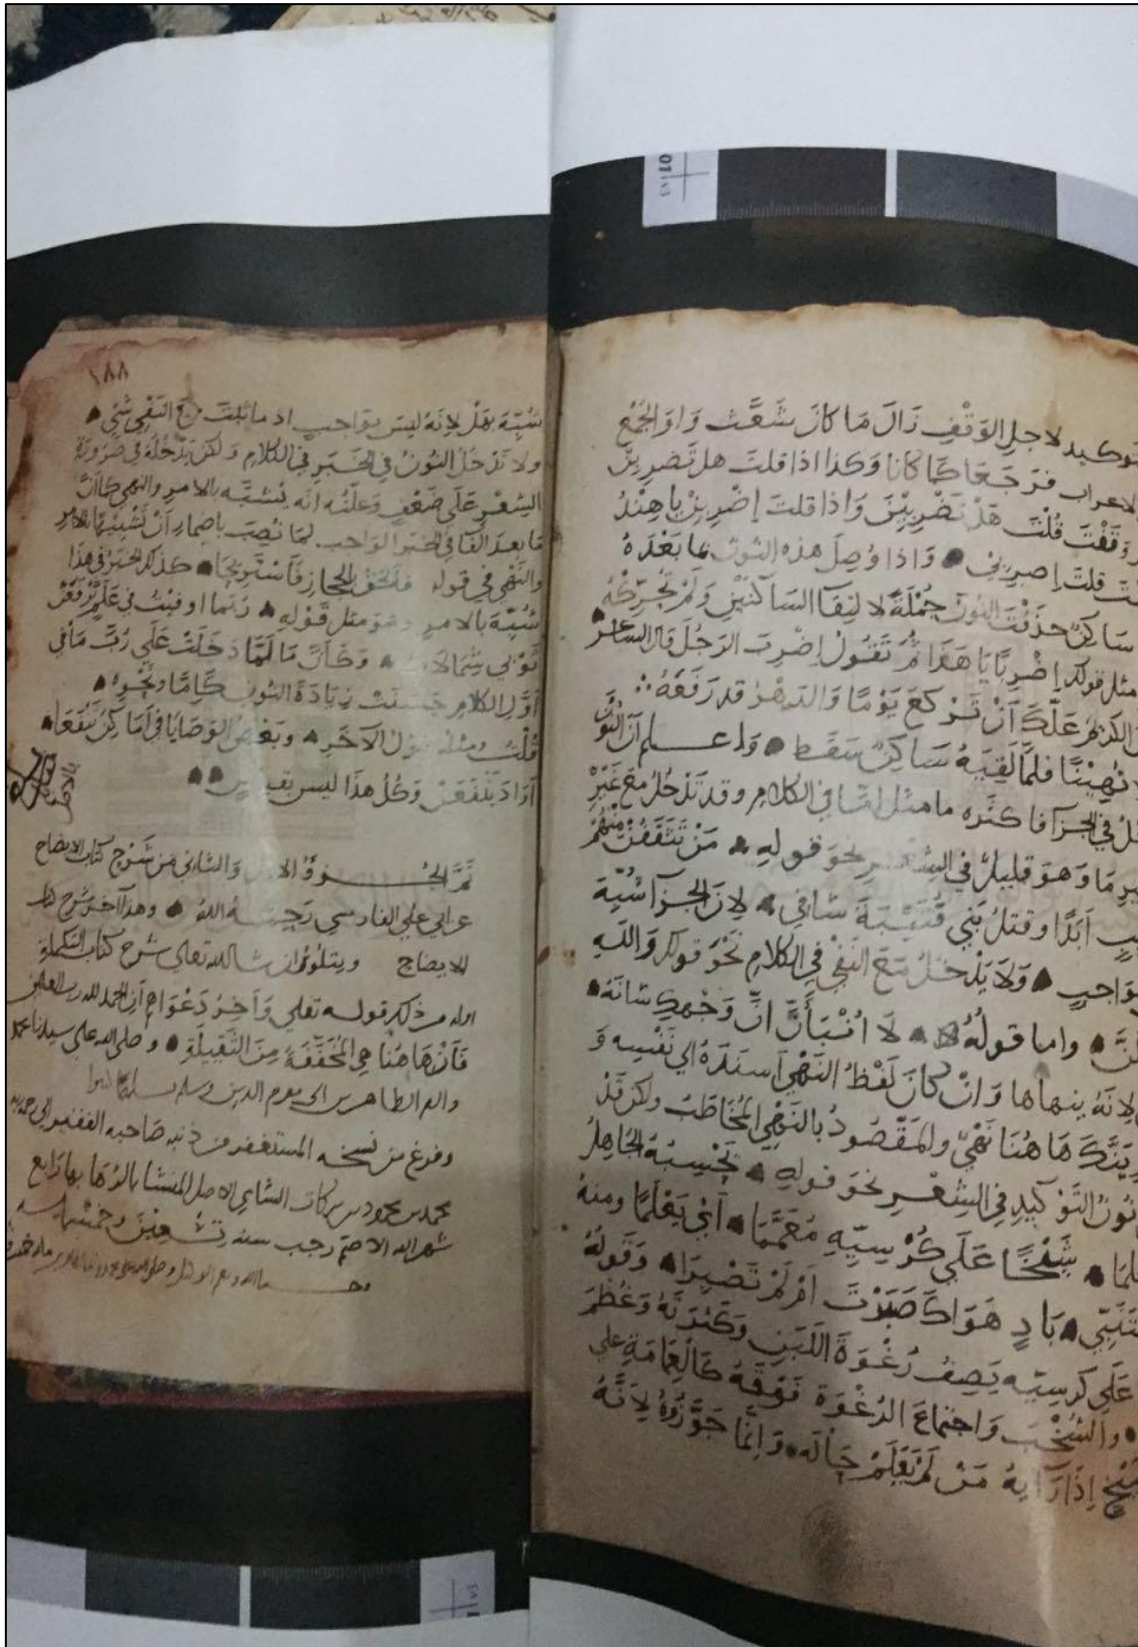 توكيد لاجل الوقف زال ما كان شعث واو الجمع
الاعراب فرجعا كما كانا وكذا اذا قلت هل تضربن
وقفت قلت هل تضربين واذا قلت إضربن يا هند
قلت إضربي واذا وصل هذه النون بما بعده
ساكن حذفت النون جملة لالتقا الساكنين ولم تحركه
مثل قولك إضربا يا هذا ثم تقول إضرب الرجل قال الشاعر
علك أن تركع يوما والدهر قد رفعه
فلما لقيه ساكن سقط واعلم أن النون
في الجزآ فاكثره ما مثل اما في الكلام وقد تدخل مع غير
ما وهو قليل في الشعر نحو قوله من تثقفن منهم
أبدا وقتل بني قتيبة شافي لان الجزآ شبة
بواجب ولا يدخل مع النفي في الكلام نحو قولك والله
واما قوله لا
لانه ينهاها وان كان لفظ النهي اسنده الي نفسه و
هاهنا نهي والمقصود بالنهي المخاطب ولكن قد
نون التوكيد في الشعر نحو قوله يحسبه الجاهل
شيخا على كرسيه معمما أي يعلما ومنه
باد هواك صبرت ام لم تصبرا وقوله
على كرسيه يصف رغوة اللبن وكثرته وعظم
واجتماع الرغوة فوقه كالعمامة علي
إذا رآيه من لم يعلم حاله وانما جوزه لانه
١٨٨
شبة بهل لانه ليس بواجب اذ ما ثبت مع النفي شي
ولا تدخل النون في الخبر في الكلام ولكن يدخله في ضرورة
الشعر على ضعف وعلته انه يشبه بالامر والنهي كما أن
ما بعد الفا في الخبر الواجب لما نصب باضمار أن تشبيها بالامر
والنهي في قوله فالحق بالحجاز فاستريحا كذلك الخبر في هذا
شبة بالامر وهو مثل قوله ربما اوفيت في علم ترفعن
ثوبي شمالات وكأن ما لما دخلت على رب ما في
أول الكلام حسنت زيادة النون كاما ونحوه
قلت ومثله قول الآخر وبعض الوصايا في أماكن تنفعا
أراد ينفعن وكل هذا ليس بقياس
تم الجزؤ الاول والثاني من شرح كتاب الايضاح
عن ابي علي الفارسي رحمه الله وهذا آخر شرح كتاب
الايضاح ويتلوه ان شا الله تعالى شرح كتاب التكملة
اوله من ذلك قوله تعلى وآخر دعواهم أن الحمد لله رب العلمين
فأن هاهنا هي المخففة من الثقيلة وصلى الله على سيدنا محمد
واله الطاهرين الى يوم الدين وسلم تسليما كثيرا
وفرغ من نسخه المستغفر من ذنبه صاحبه الفقير الى رحمة ربه
محمد بن محمود بن بركات الشامي الاصل المنشا بالرها بها رابع
شهر الله الاصم رجب سنه تسعين وخمسمايه